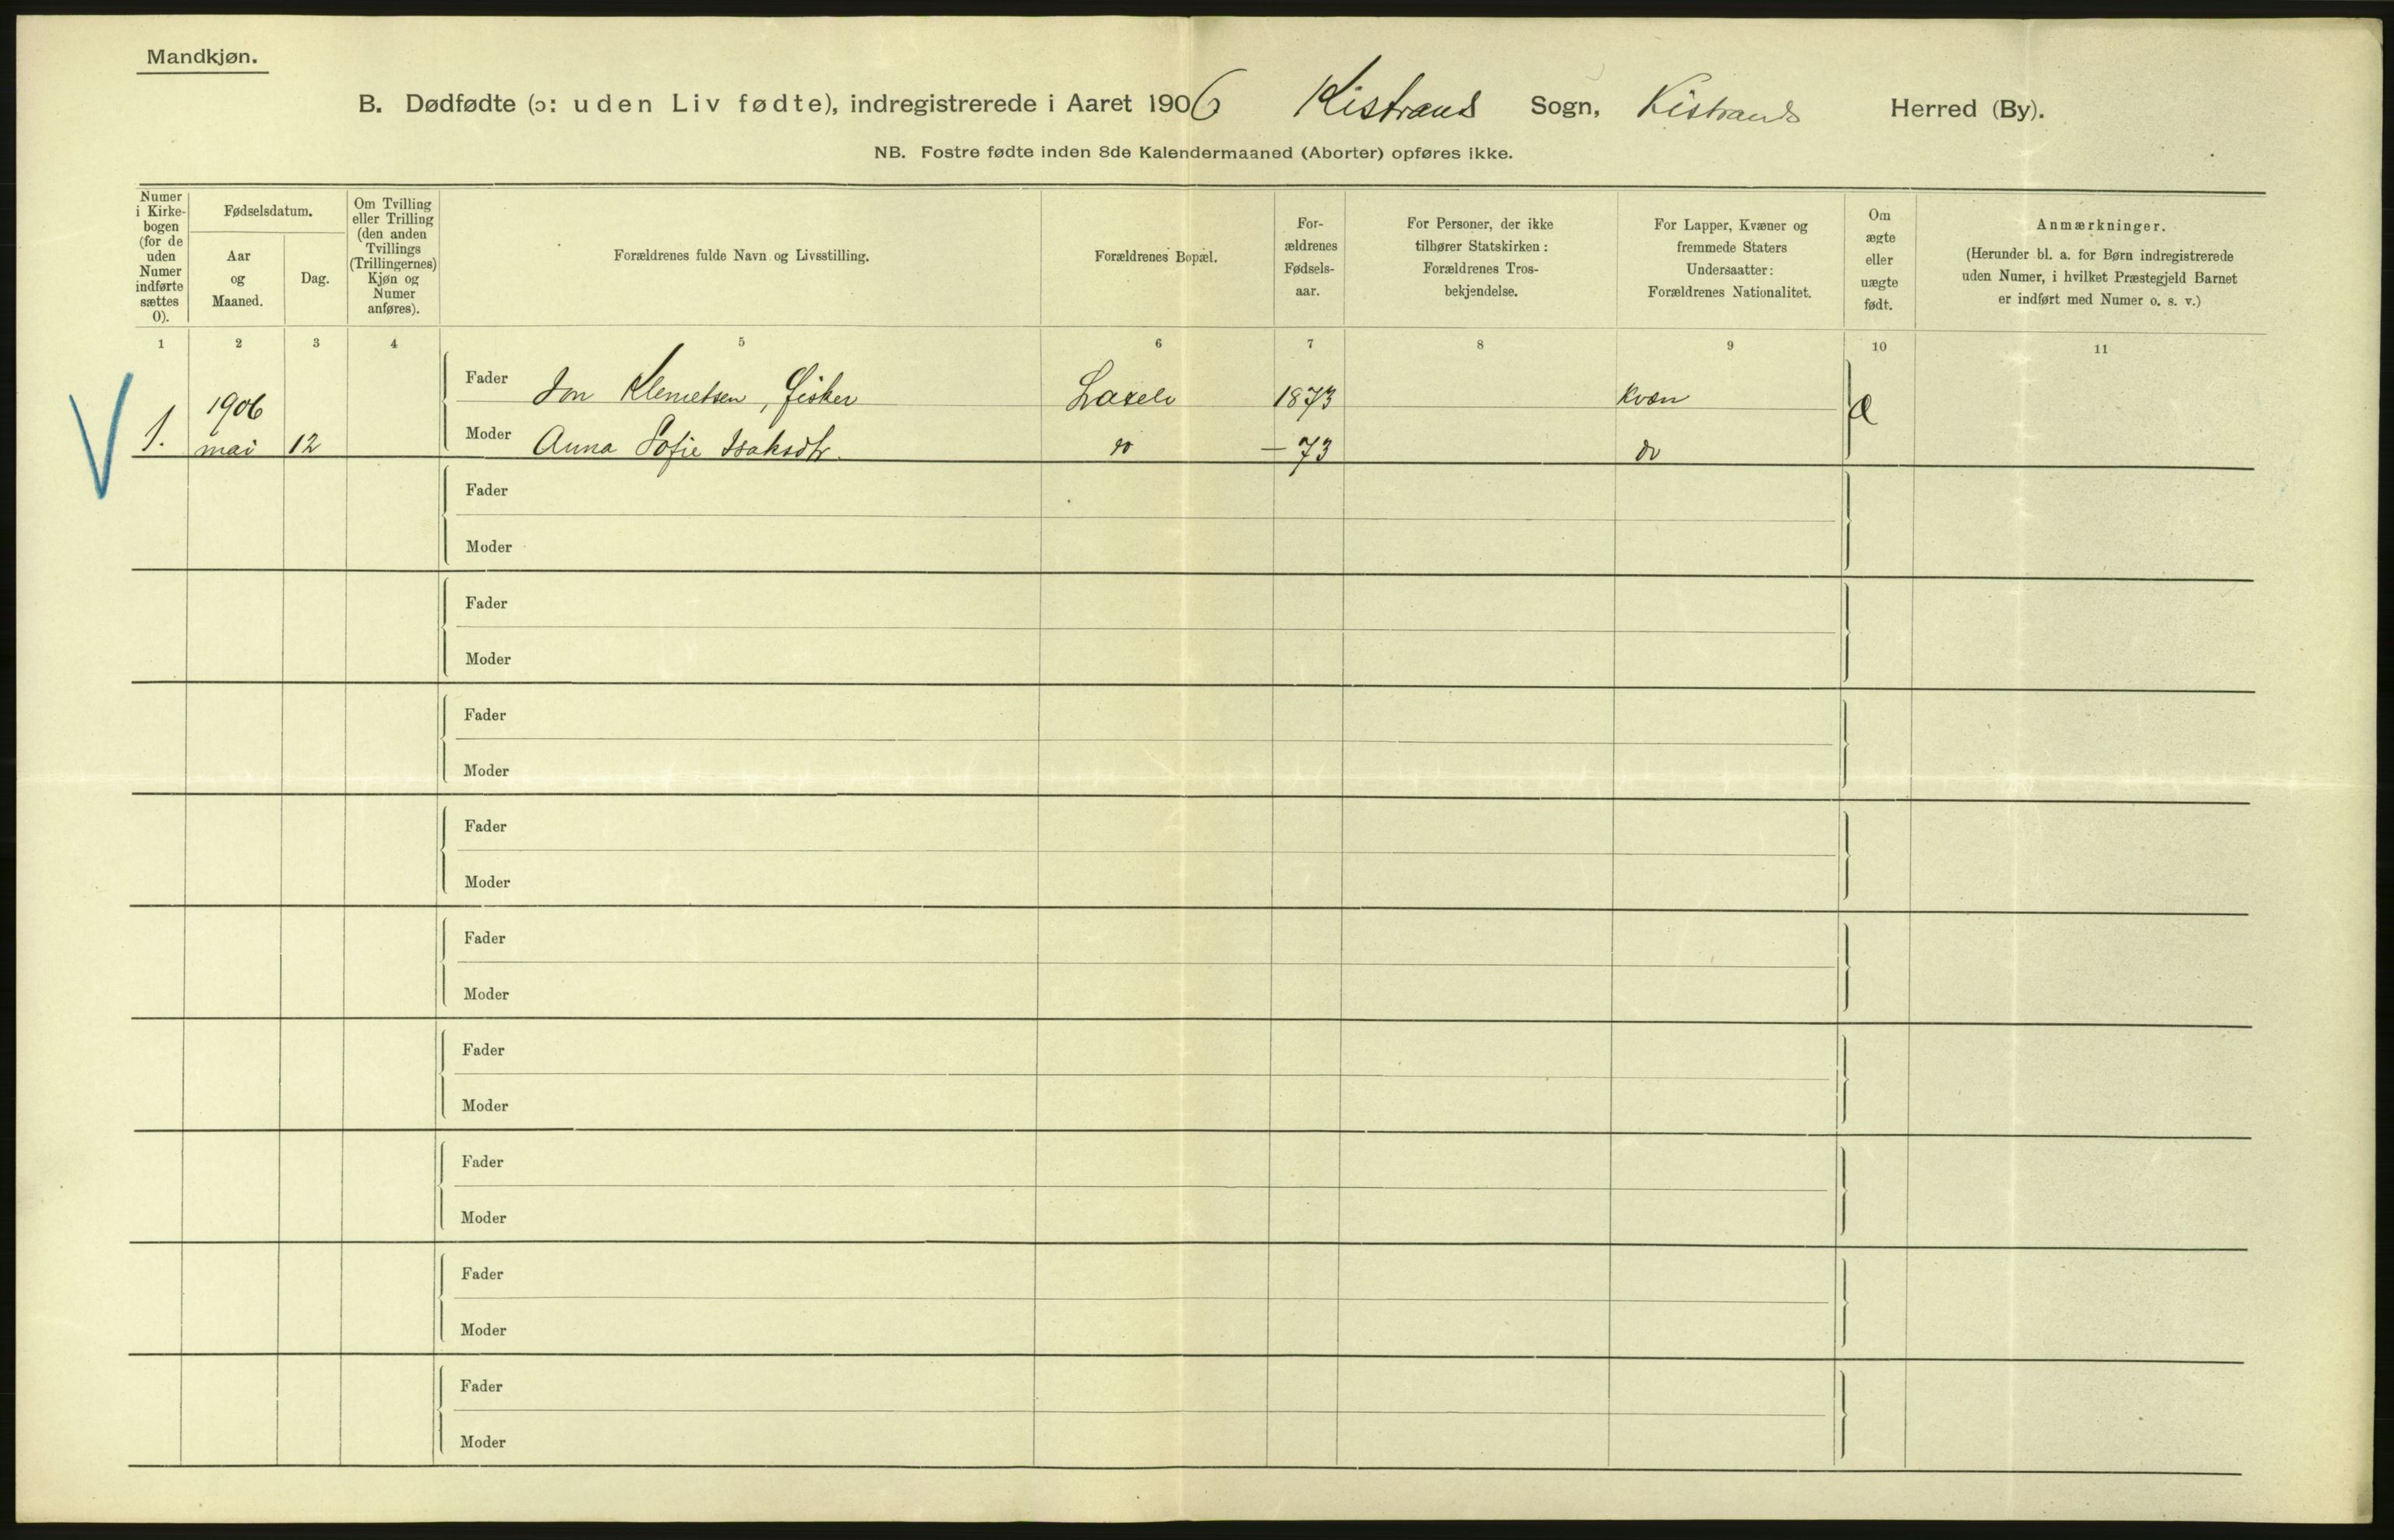 Mandkjøn.
B. Dødfødte (ɔ: uden Liv fødte), indregistrerede i Aaret 1906 Kistrand Sogn, Kistrands Herred (By).
NB. Fostre fødte inden 8de Kalendermaaned (Aborter) opføres ikke.
Numer i Kirkebogen (for de uden Numer indførte sættes 0).
Fødselsdatum.
Aar og Maaned.
Dag.
Om Tvilling eller Trilling (den anden Tvillings (Trillingernes) Kjøn og Numer anføres).
Forældrenes fulde Navn og Livsstilling.
Forældrenes Bopæl.
For-ældrenes Fødsels-aar.
For Personer, der ikke tilhører Statskirken: Forældrenes Tros-bekjendelse.
For Lapper, Kvæner og fremmede Staters Undersaatter: Forældrenes Nationalitet.
Om ægte eller uægte født.
Anmærkninger.
(Herunder bl. a. for Børn indregistrerede uden Numer, i hvilket Præstegjeld Barnet er indført med Numer o. s. v.)
1 2 3 4 5 6 7 8 9 10 11
1906 Fader Jon Klemetsen, fisker Laxelv 1873 kvæn æ
1. mai 12 Moder Anna Sofie Isaksdtr. do – 73 do
Fader
Moder
Fader
Moder
Fader
Moder
Fader
Moder
Fader
Moder
Fader
Moder
Fader
Moder
Fader
Moder
Fader
Moder